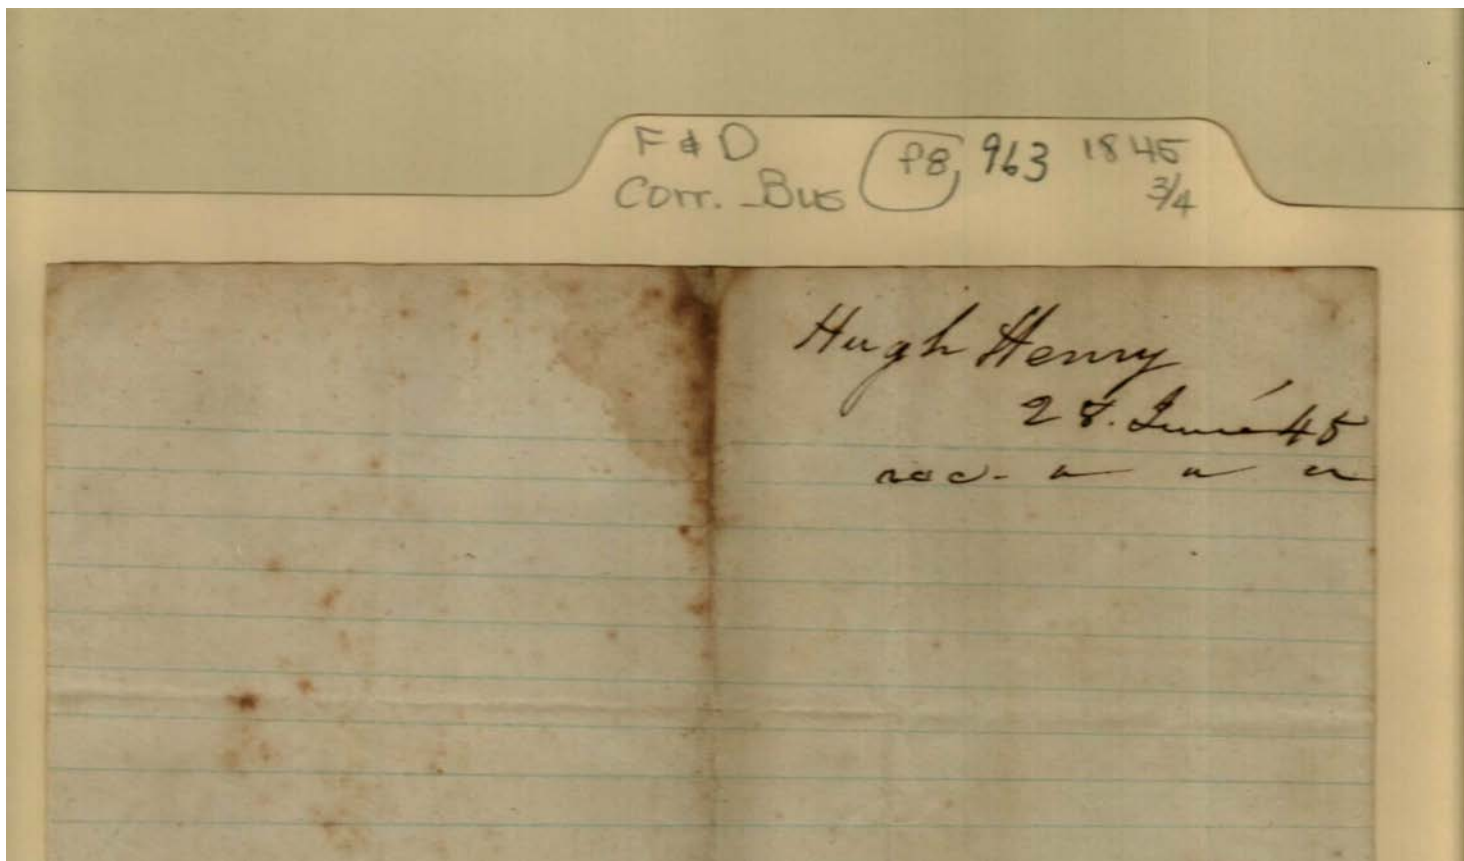 F & D
Corr. Bus
f8, 963 1845
3/4
Hugh Henry
28. June 45
rec - " " "